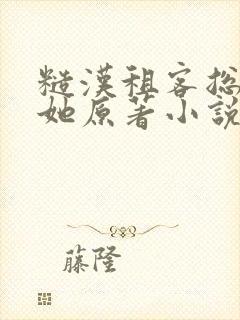 糙漢租客總
她原著小說
藤隆